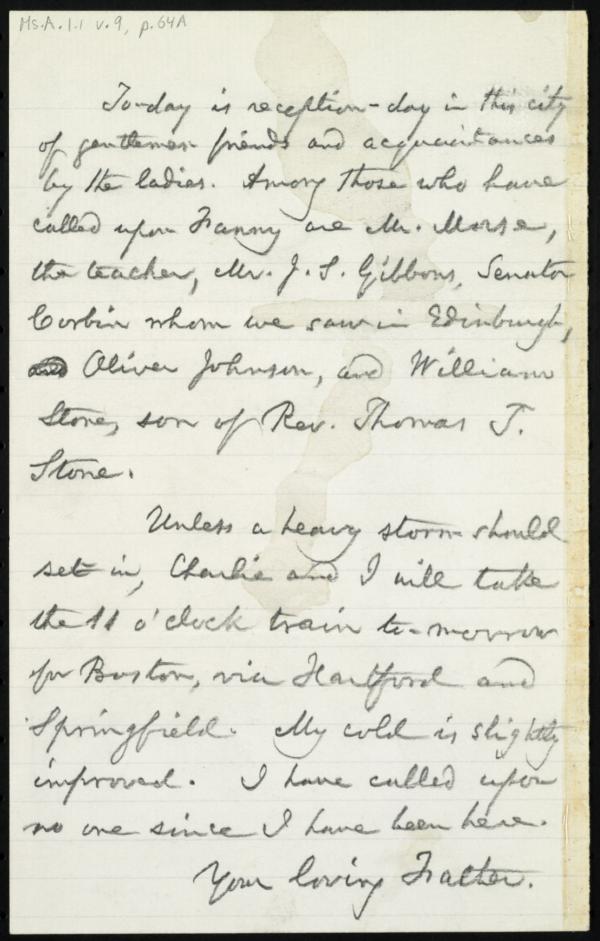 Ms.A.1.1 v.9, p.64A
To-day is reception-day in this city
of gentlemen friends and acquaintances
by the ladies. Among those who have
called upon Fanny are Mr. Morse,
the teacher, Mr. J. S. Gibbons, Senator
Corbin whom we saw in Edinburgh,
Oliver Johnson, and William
Stone, son of Rev. Thomas T.
Stone.
Unless a heavy storm should
set in, Charlie and I will take
the 11 o'clock train to-morrow
for Boston, via Hartford and
Springfield. My cold is slightly
improved. I have called upon
no one since I have been here.
Your loving Father.